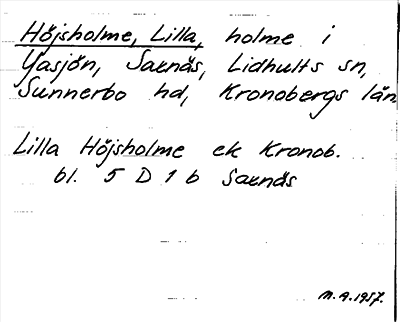 Höjsholme, Lilla, holme i
Yasjön, Saxnäs, Lidhults sn,
Sunnerbo hd, Kronobergs län
Lilla Höjsholme ek Kronob.
bl. 5 D 1 b Saxnäs
M.A. 1957.